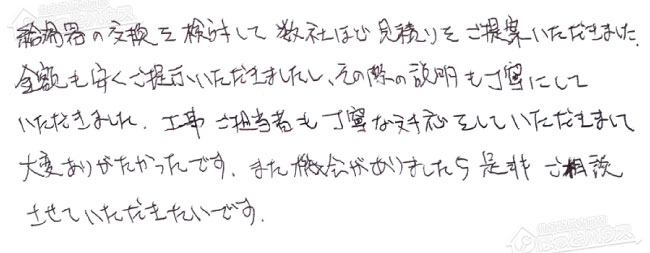 給湯器の交換を検討して数社ほど見積りをご提案いただきました。
金額も安くご提示いただきましたし、その際の説明も丁寧にして
いただきました。工事ご担当者も丁寧な対応をしていただきまして
大変ありがたかったです。また機会がありましたら是非ご相談
させていただきたいです。